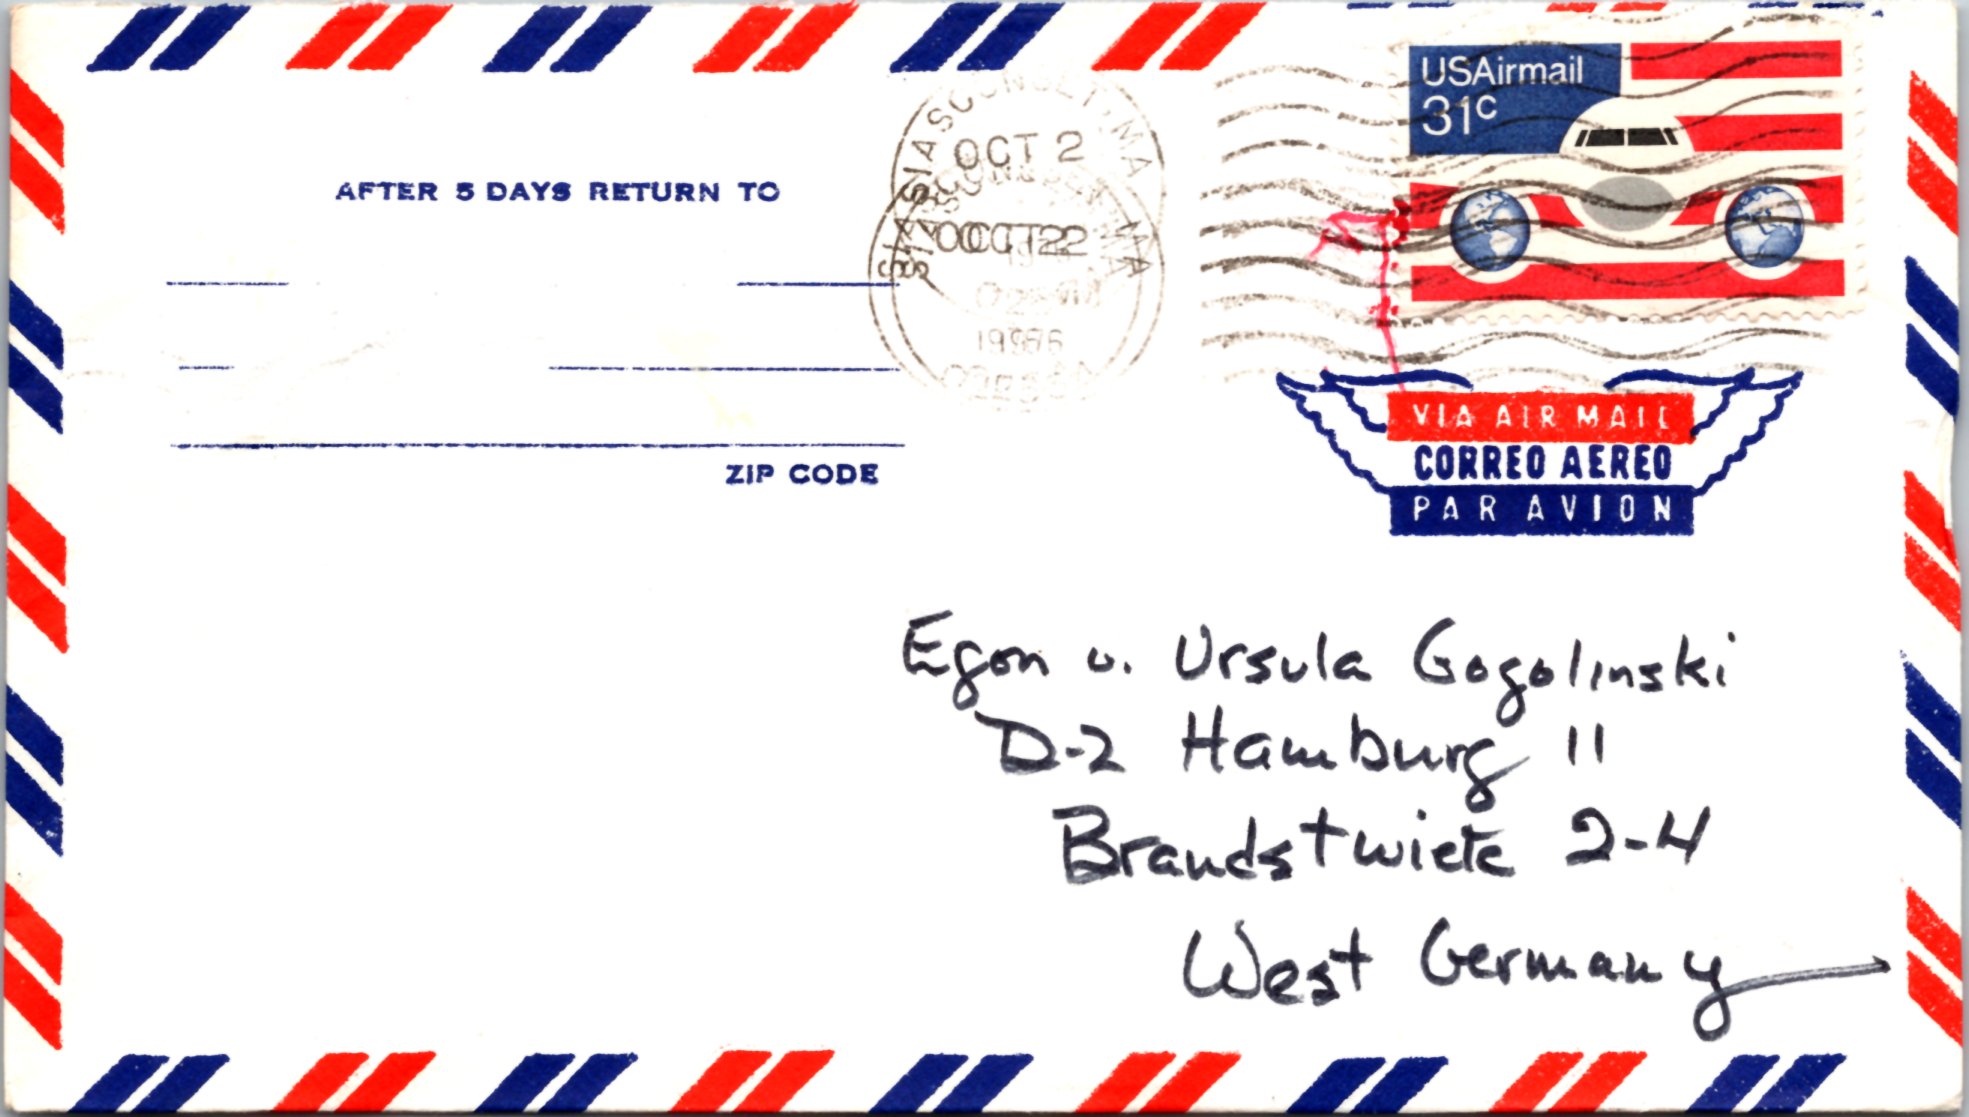 USAirmail
31c
SIASCONSET, MA
OCT 2
1976
AFTER 5 DAYS RETURN TO
ZIP CODE
VIA AIR MAIL
CORREO AEREO
PAR AVION
Egon u. Ursula Gogolinski
D-2 Hamburg 11
Brandstwiete 2-4
West Germany